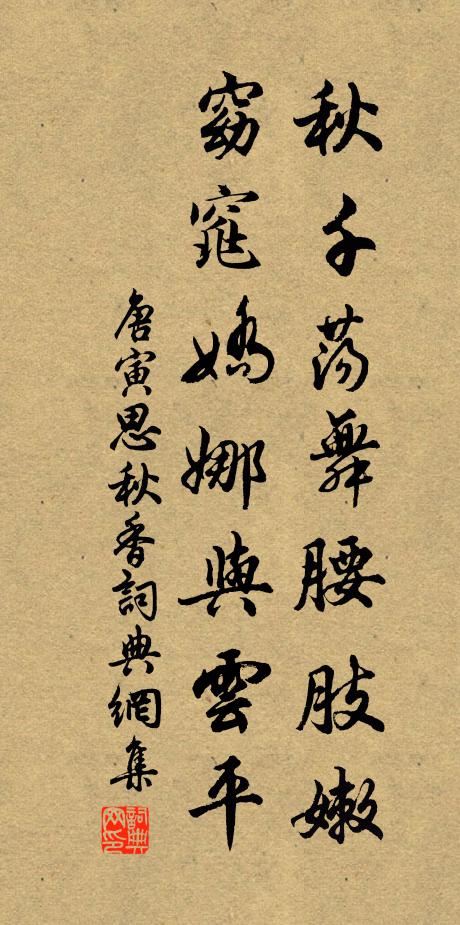 秋千蕩舞腰肢嫩
窈窕嬌娜與雲平
唐寅思秋香詞典網集
詞典网印